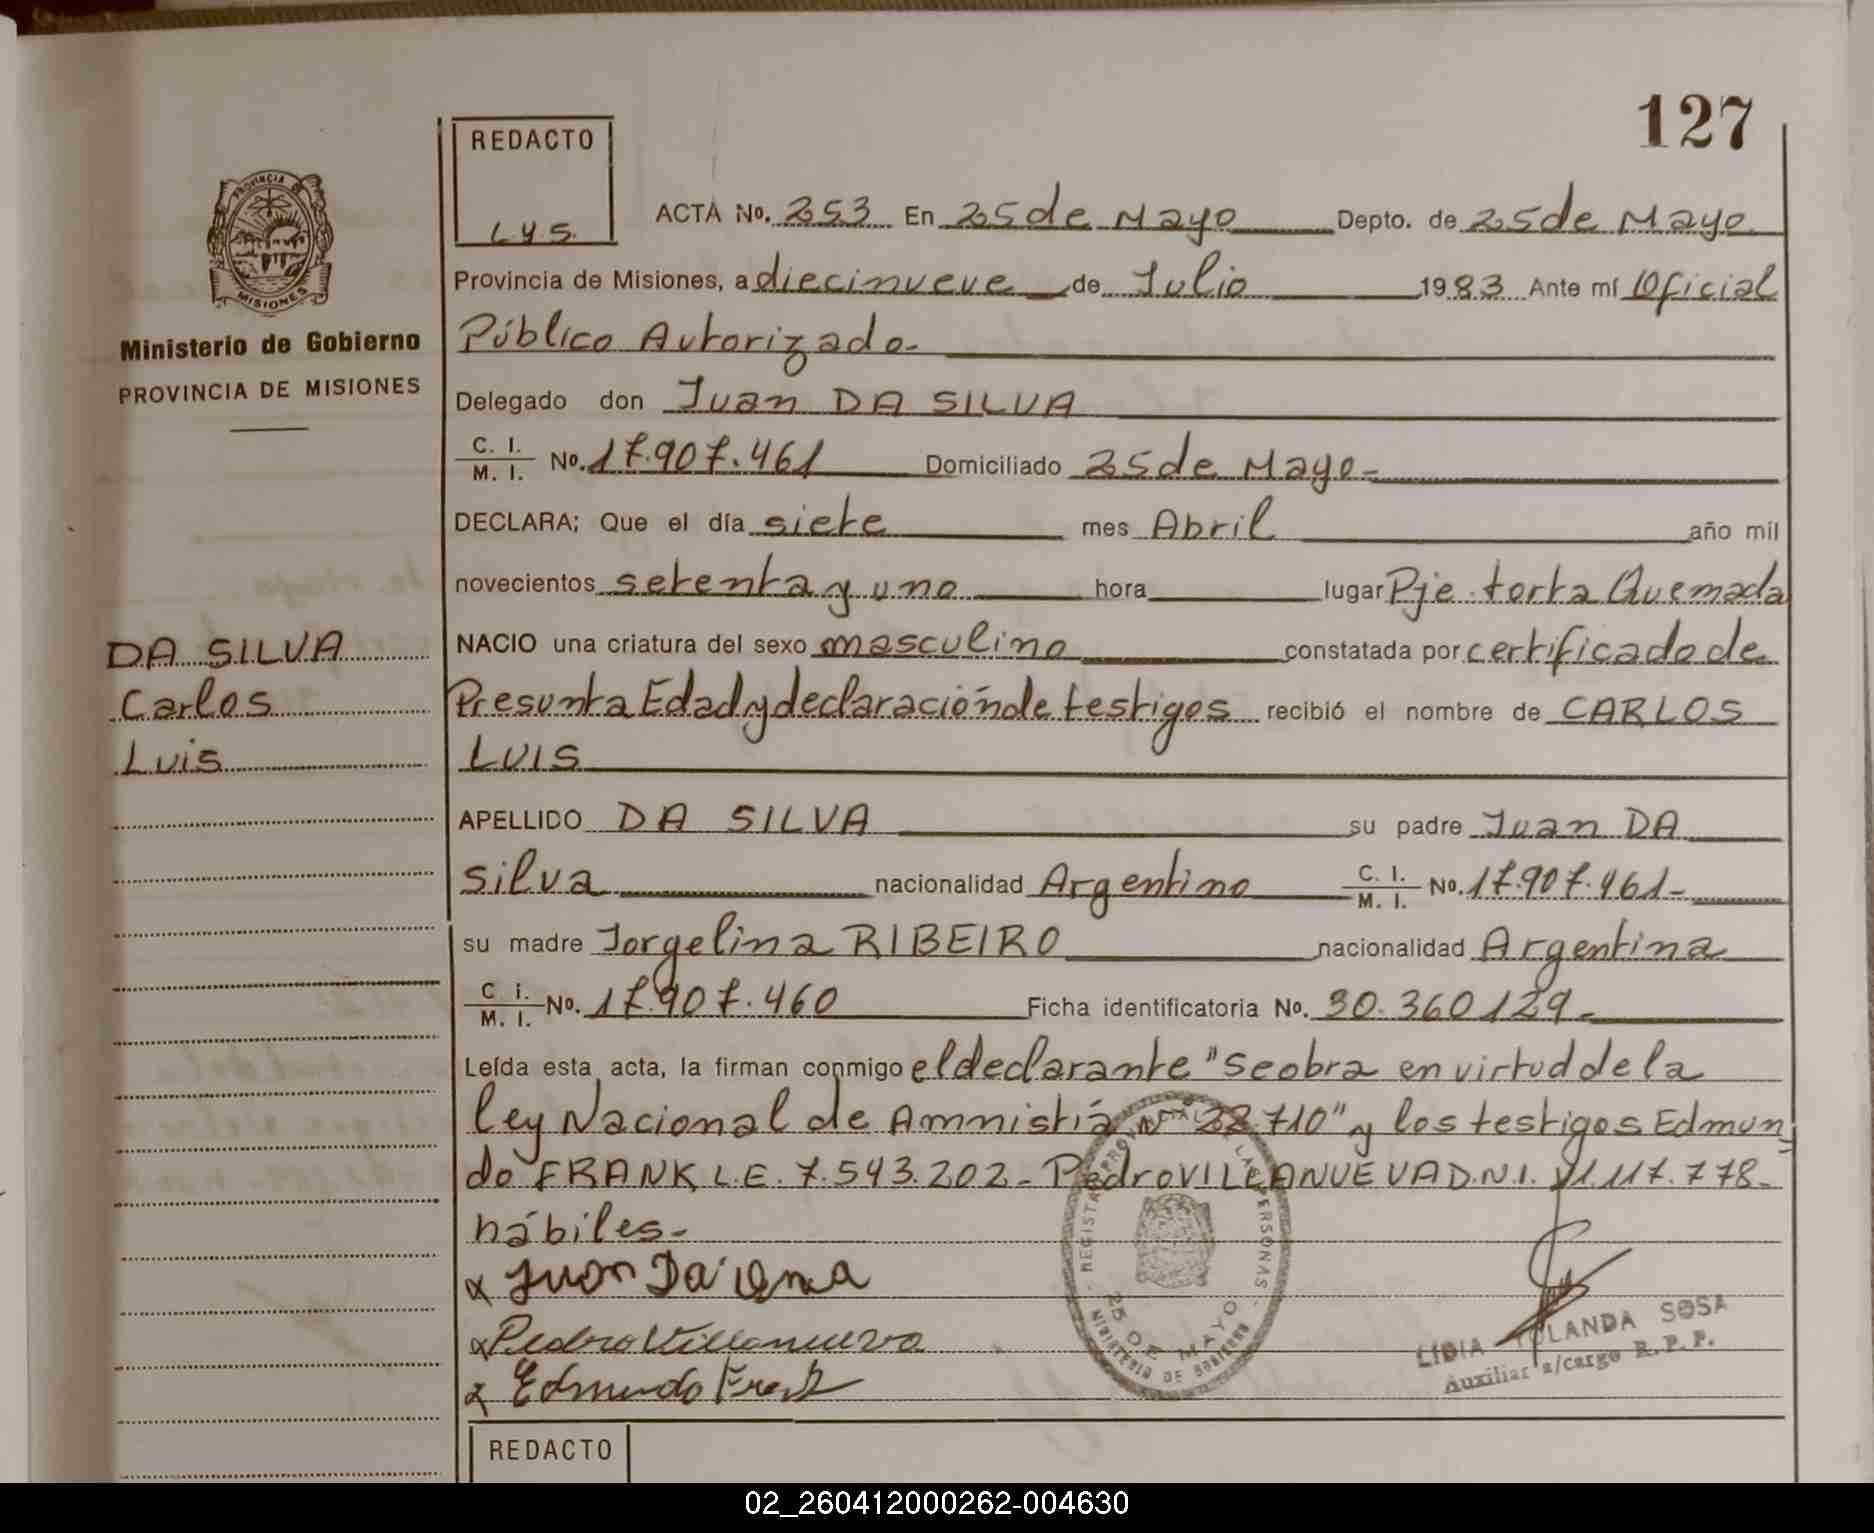 127
REDACTO
L.Y.S.
ACTA No. 253 En 25 de Mayo Depto. de 25 de Mayo
PROVINCIA DE
MISIONES
Provincia de Misiones, a diecinueve de Julio 1983 Ante mí Oficial
Ministerio de Gobierno
Público Autorizado-
PROVINCIA DE MISIONES
Delegado don Juan DA SILVA
C. I.
M. I. No. 17.907.461 Domiciliado 25 de Mayo-
DECLARA; Que el día siete mes Abril año mil
novecientos setenta y uno hora lugar Pje. torta Quemada
NACIO una criatura del sexo masculino constatada por certificado de
DA SILVA
Carlos
Luis
Presunta Edad y declaración de testigos recibió el nombre de CARLOS
LUIS
APELLIDO DA SILVA su padre Juan DA
silva nacionalidad Argentino C. I. M. I. No. 17.907.461-
su madre Jorgelina RIBEIRO nacionalidad Argentina
C i. M. I. No. 17.907.460 Ficha identificatoria No. 30.360129-
Leída esta acta, la firman conmigo el declarante "se obra en virtud de la
ley Nacional de Amnistiá Nº 22710" y los testigos Edmun
do FRANK L.E. 7.543.202- Pedro VILLANUEVA D.N.I. 11.117.778-
hábiles-
x Juan Da
x Pedro Villanueva
x Edmundo Frank
REGISTRO PROVINCIAL DE LAS PERSONAS
25 DE MAYO
MINISTERIO DE GOBIERNO
LIDIA YOLANDA SOSA
Auxiliar a/cargo R. P. P.
REDACTO
02_260412000262-004630